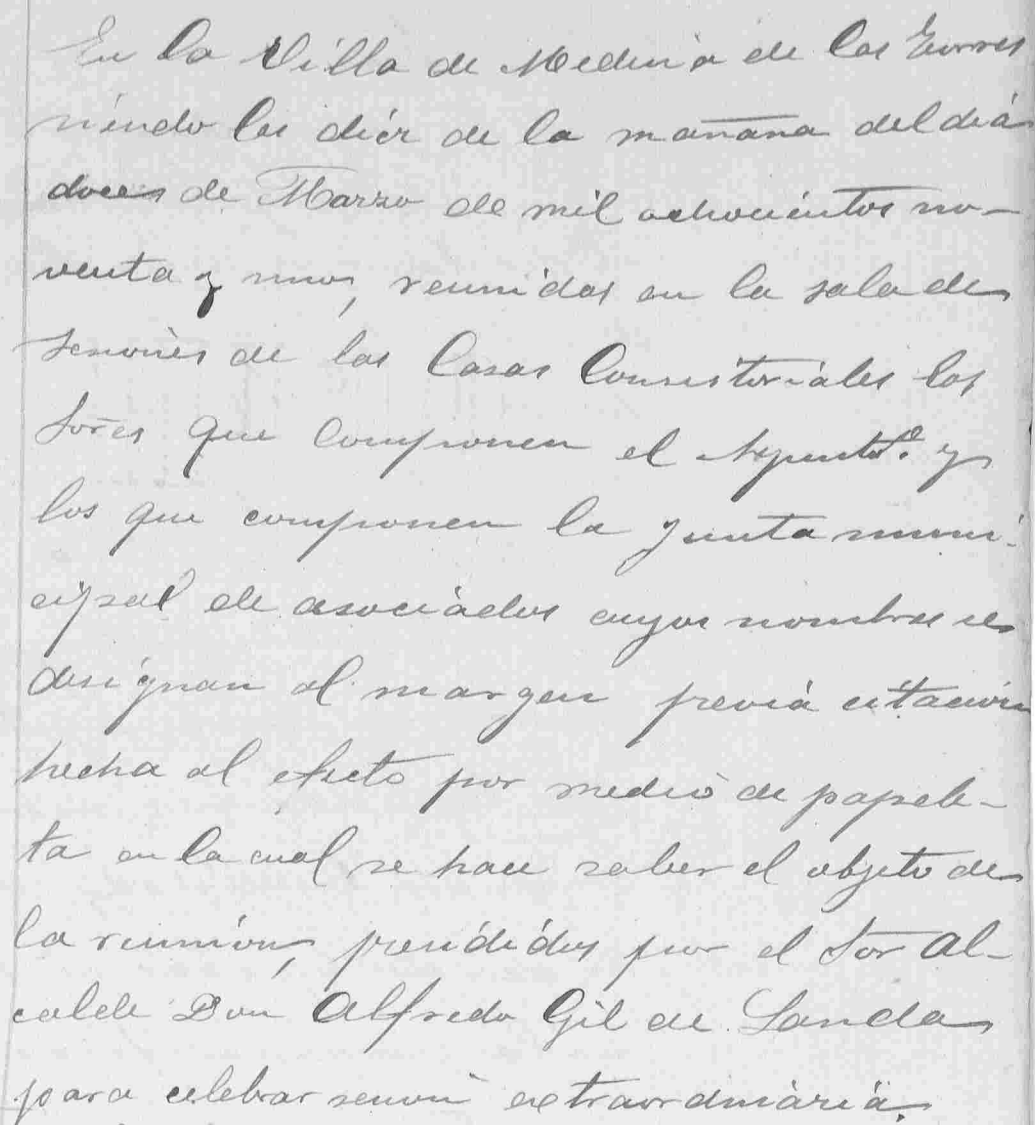 En la Villa de Medina de las Torres
siendo las diez de la mañana del dia
doce de Marzo de mil ochocientos no-
venta y uno, reunidos en la sala de
sesiones de las Casas Consistoriales los
Sores que componen el Ayuntto. y
los que componen la Junta muni-
cipal de asociados cuyos nombres se
designan al margen previa citación
hecha al efecto por medio de papele-
ta en la cual se hace saber el objeto de
la reunion, presididos por el Sor Al-
calde Don Alfredo Gil de Landa
para celebrar sesion extraordinaria.